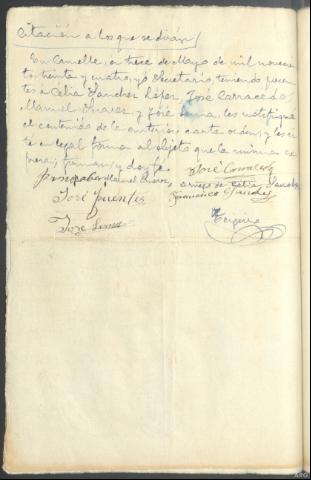 Citación a los que se dirán/
En Camelle, a trece de Mayo de mil novecien
to, treinta y cuatro, yo Secretario, teniendo presen
tes a Celia Sanchez López, José Carracedo,
Manuel Suarez y José Lema, les notifiqué
el contenido de la anterior carta orden, y les ci
té en legal forma al objeto que la misma ex
presa; firman, y doy fé.
José Carracedo
Manuel Suarez, a ruego de Celia Sanchez
José Puentes Francisco
José Lema